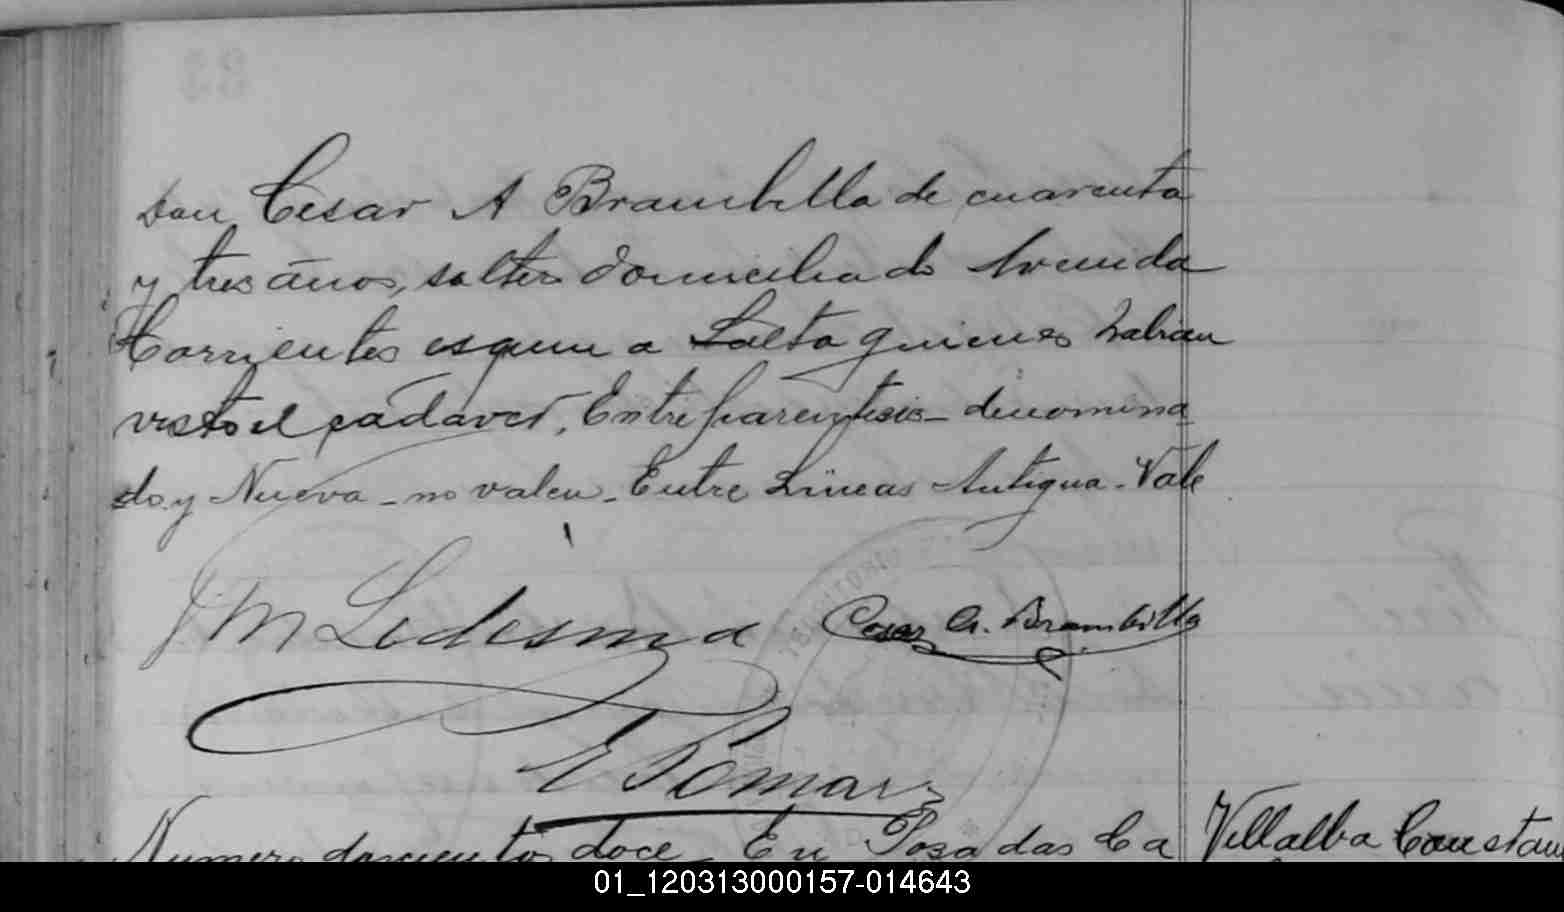 Don Cesar A Brambilla de cuarenta
y tres años, soltero domiciliado Avenida
Corrientes esquina a Salta quienes habian
visto el cadaver. Entre parentesis - denomina
do y Nueva - no valen - Entre Lineas Antigua - Vale
J M Ledesma
Cesar A. Brambilla
TERRITORIO
E Pomar
Numero doscientos doce En Posadas Ca
Villalba Constan
01_120313000157-014643